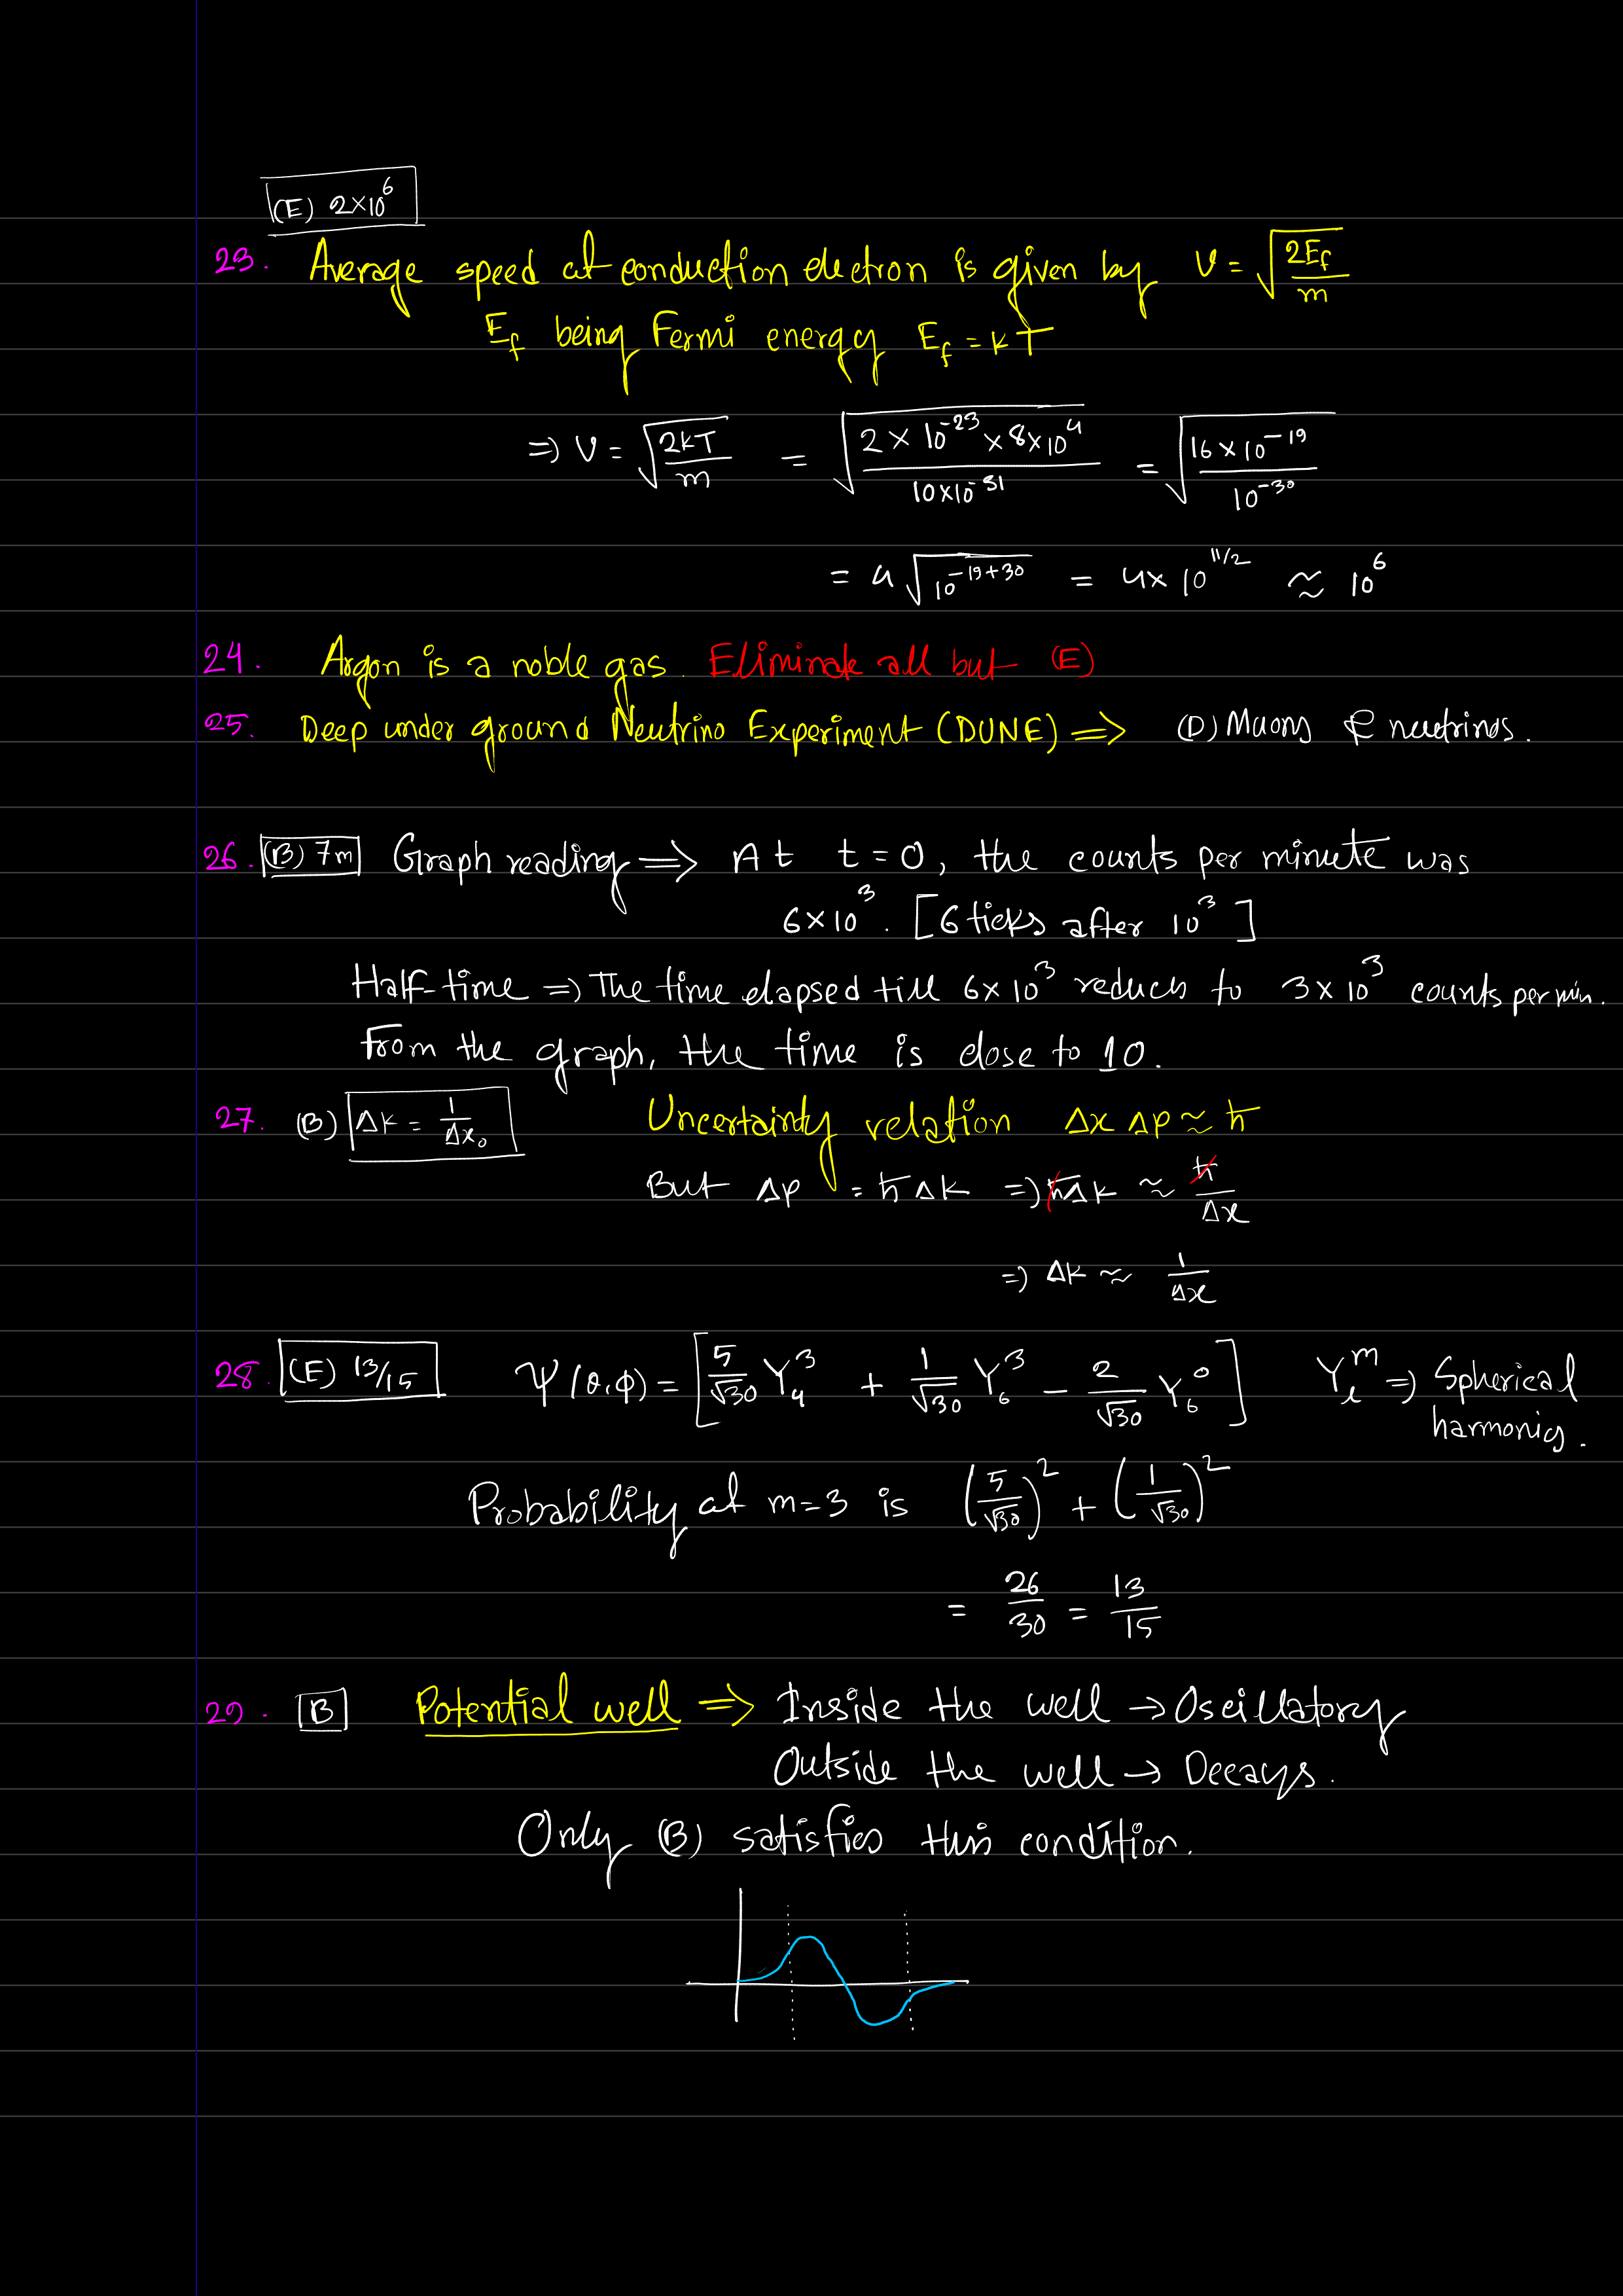 (E) 2×10⁶
23. Average speed of conduction electron is given by v = √(2E_f/m)
E_f being Fermi energy E_f = kT
⇒ v = √(2kT/m) = √(2×10⁻²³×8×10⁴/10×10⁻³¹) = √(16×10⁻¹⁹/10⁻³⁰)
= 4√(10⁻¹⁹⁺³⁰) = 4×10^(11/2) ≈ 10⁶
24. Argon is a noble gas. Eliminate all but (E)
25. Deep under ground Neutrino Experiment (DUNE) ⇒ (D) Muons & neutrinos.
26. (B) 7m Graph reading ⇒ At t = 0, the counts per minute was
6×10³. [6 ticks after 10³]
Half-time ⇒ The time elapsed till 6×10³ reduces to 3×10³ counts per min.
From the graph, the time is close to 10.
27. (B) Δk = 1/Δx₀ Uncertainty relation Δx Δp ≈ ħ
But Δp = ħΔk ⇒ ħΔk ≈ ħ/Δx
⇒ Δk ≈ 1/Δx
28. (E) 13/15 Ψ(θ,φ) = [5/√30 Y₄³ + 1/√30 Y₆³ − 2/√30 Y₆⁰] Y_l^m ⇒ Spherical
harmonics.
Probability of m=3 is (5/√30)² + (1/√30)²
= 26/30 = 13/15
29. B Potential well ⇒ Inside the well → Oscillatory
Outside the well → Decays.
Only (B) satisfies this condition.